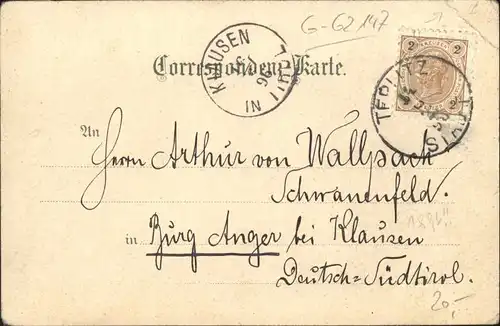 G-G2 147
KLAUSEN
IN TIROL
96
2 2
2 2
Correspondenz-Karte.
TEPLITZ
An
Herrn Arthur von Wallpach
Schwanenfeld.
1896!!
in Burg Anger bei Klausen
Deutsch=Südtirol.
20,-